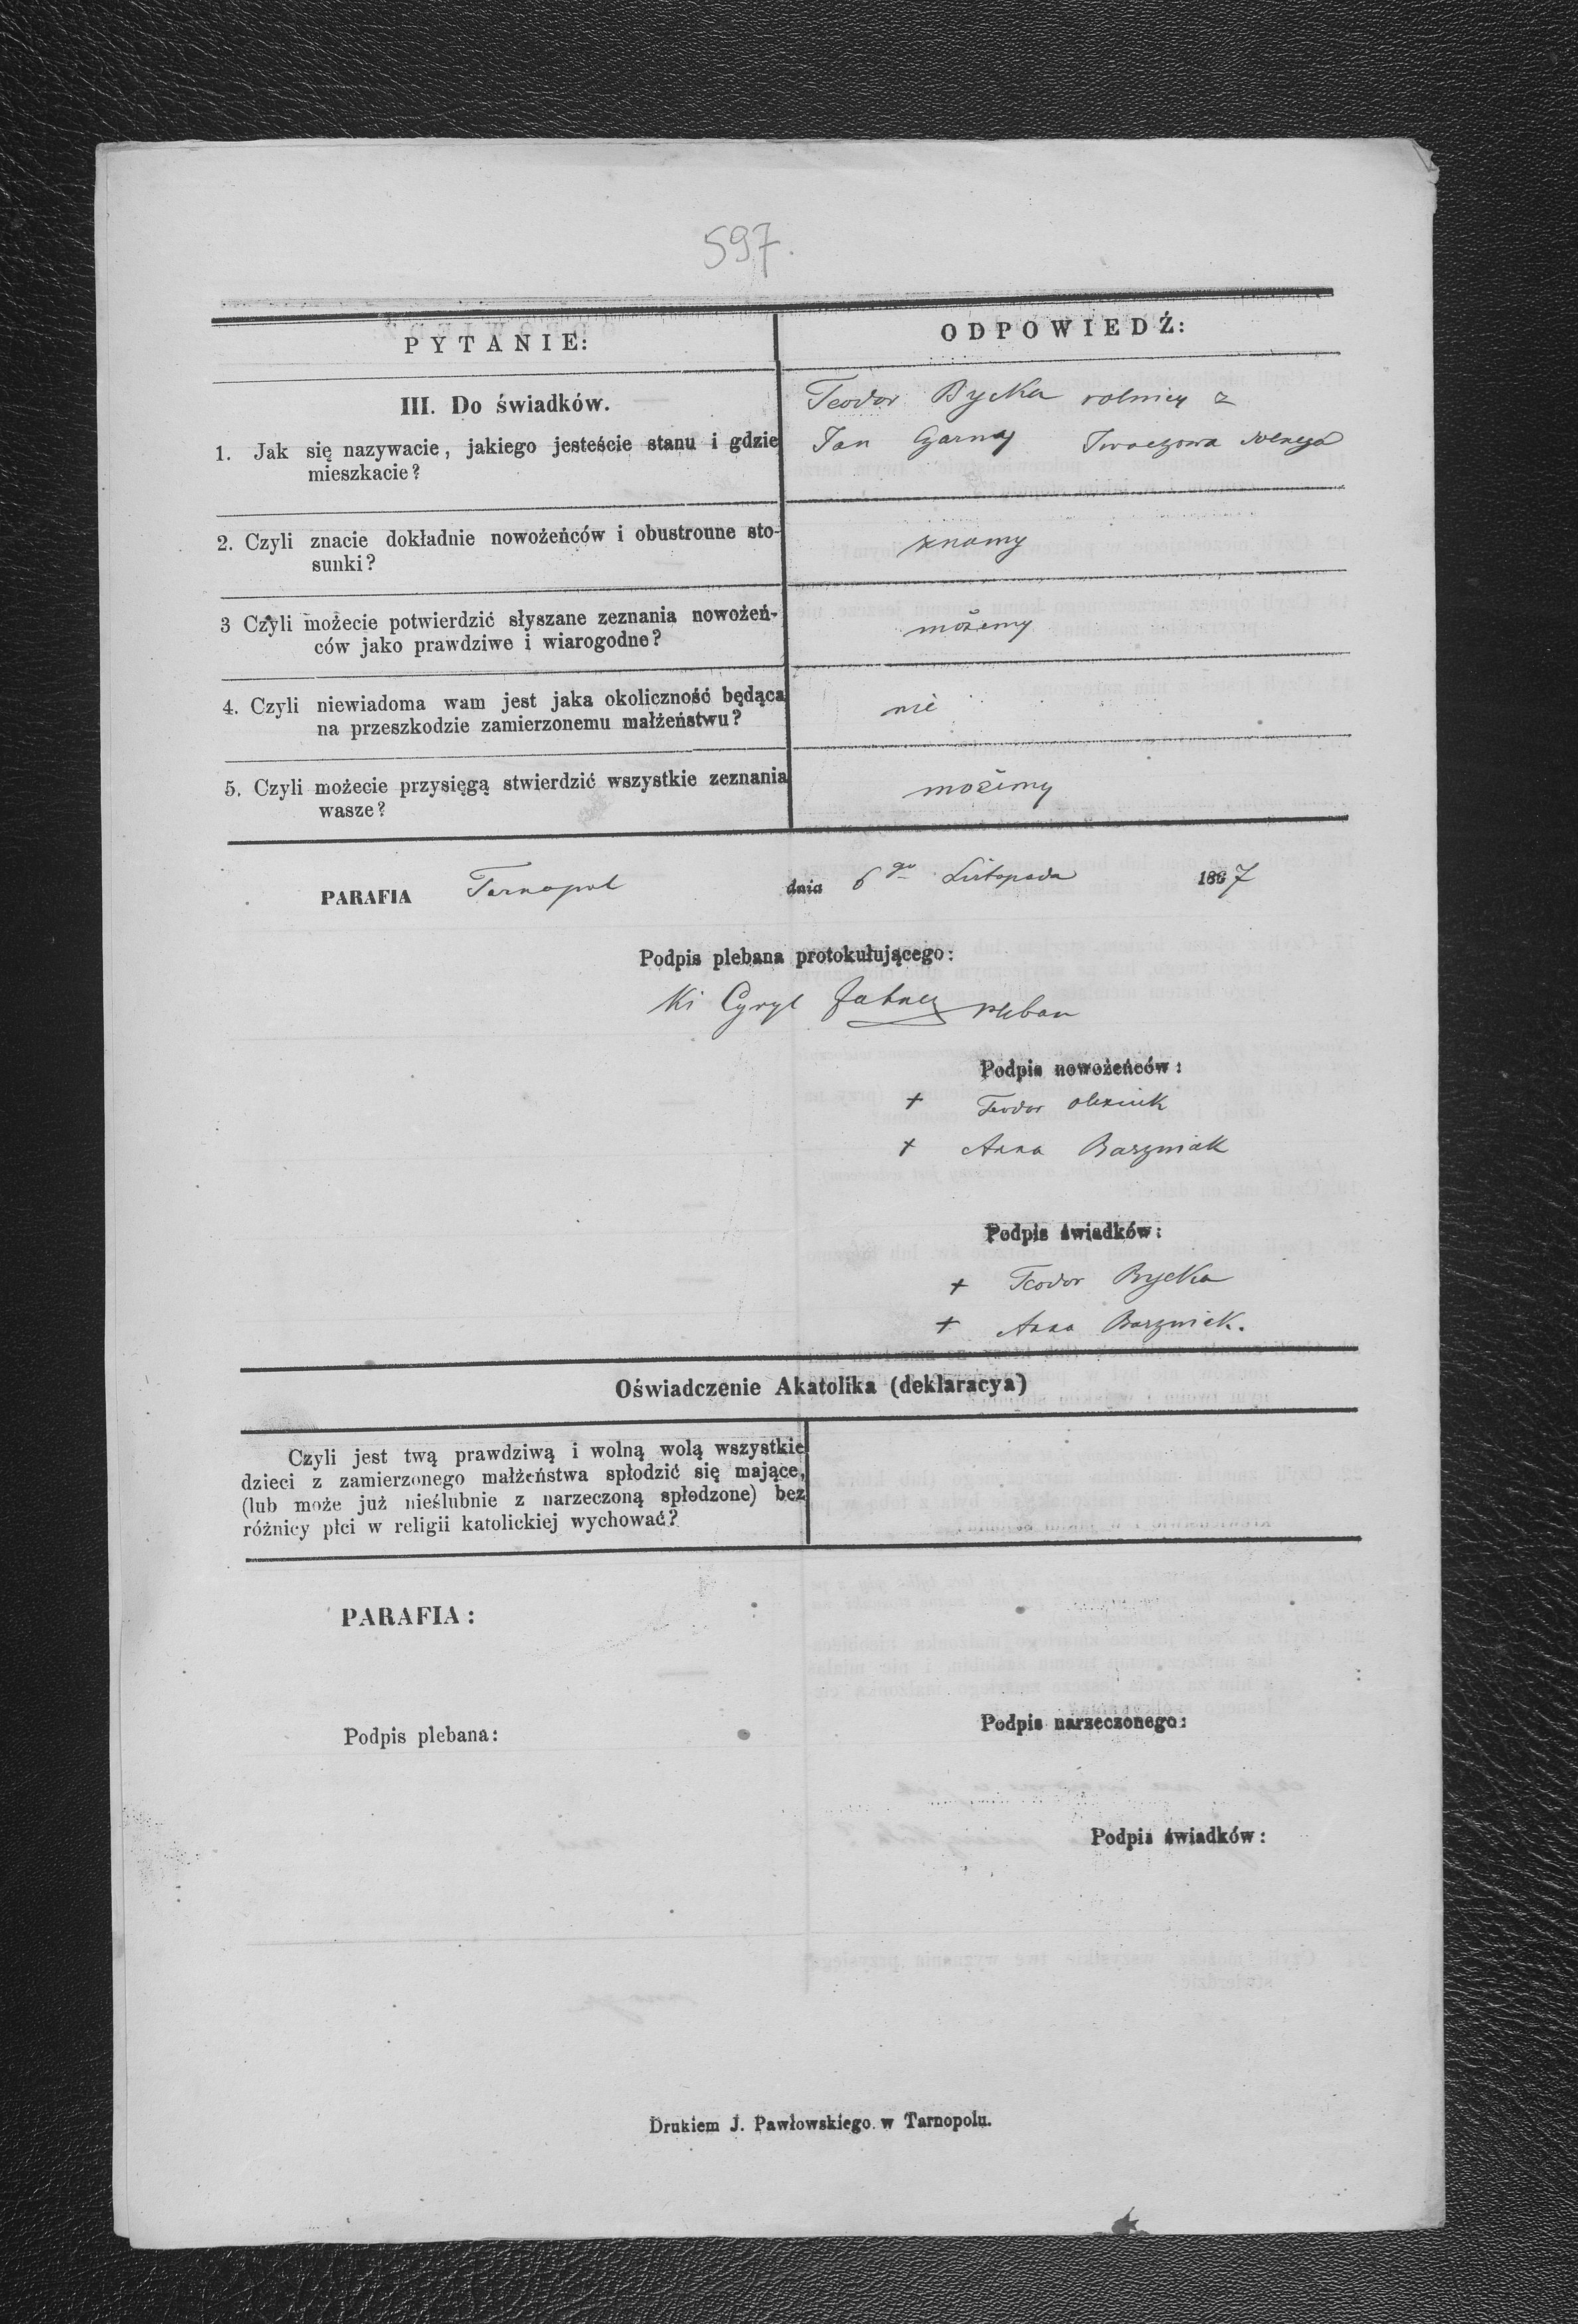 597.
PYTANIE:
ODPOWIEDŹ:
III. Do świadków.
1. Jak się nazywacie, jakiego jesteście stanu i gdzie
mieszkacie?
Teodor Bycka rolnicy z
Jan Czarny Iwaczowa dolnego
2. Czyli znacie dokładnie nowożeńców i obustronne sto-
sunki?
znamy
3 Czyli możecie potwierdzić słyszane zeznania nowożeń-
ców jako prawdziwe i wiarogodne?
możemy
4. Czyli niewiadoma wam jest jaka okoliczność będąca
na przeszkodzie zamierzonemu małżeństwu?
nie
5. Czyli możecie przysięgą stwierdzić wszystkie zeznania
wasze?
możemy
PARAFIA Tarnopol dnia 6go Listopada 1887
Podpis plebana protokułującego:
Cyryl pleban
Podpis nowożeńców:
+ Teodor Olexiuk
+ Anna Baszniak
Podpis świadków:
+ Teodor Bycka
+ Anna Baszniak.
Oświadczenie Akatolika (deklaracya)
Czyli jest twą prawdziwą i wolną wolą wszystkie
dzieci z zamierzonego małżeństwa spłodzić się mające,
(lub może już nieślubnie z narzeczoną spłodzone) bez
różnicy płci w religii katolickiej wychować?
PARAFIA:
Podpis plebana:
Podpis narzeczonego:
Podpis świadków:
Drukiem J. Pawłowskiego w Tarnopolu.